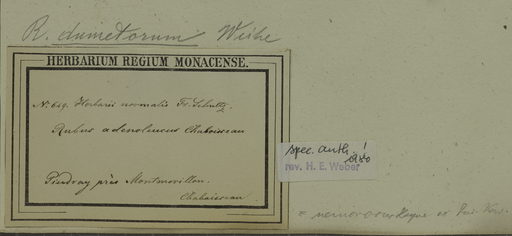 R. dumetorum Weihe
HERBARIUM REGIUM MONACENSE.
No. 649. Herbaris normalis Fr. Schultz.
Rubus adenoleucus Chaboisseau
Pindray près Montmorillon.
Chaboisseau
spec. auth.!
rev. H. E. Weber